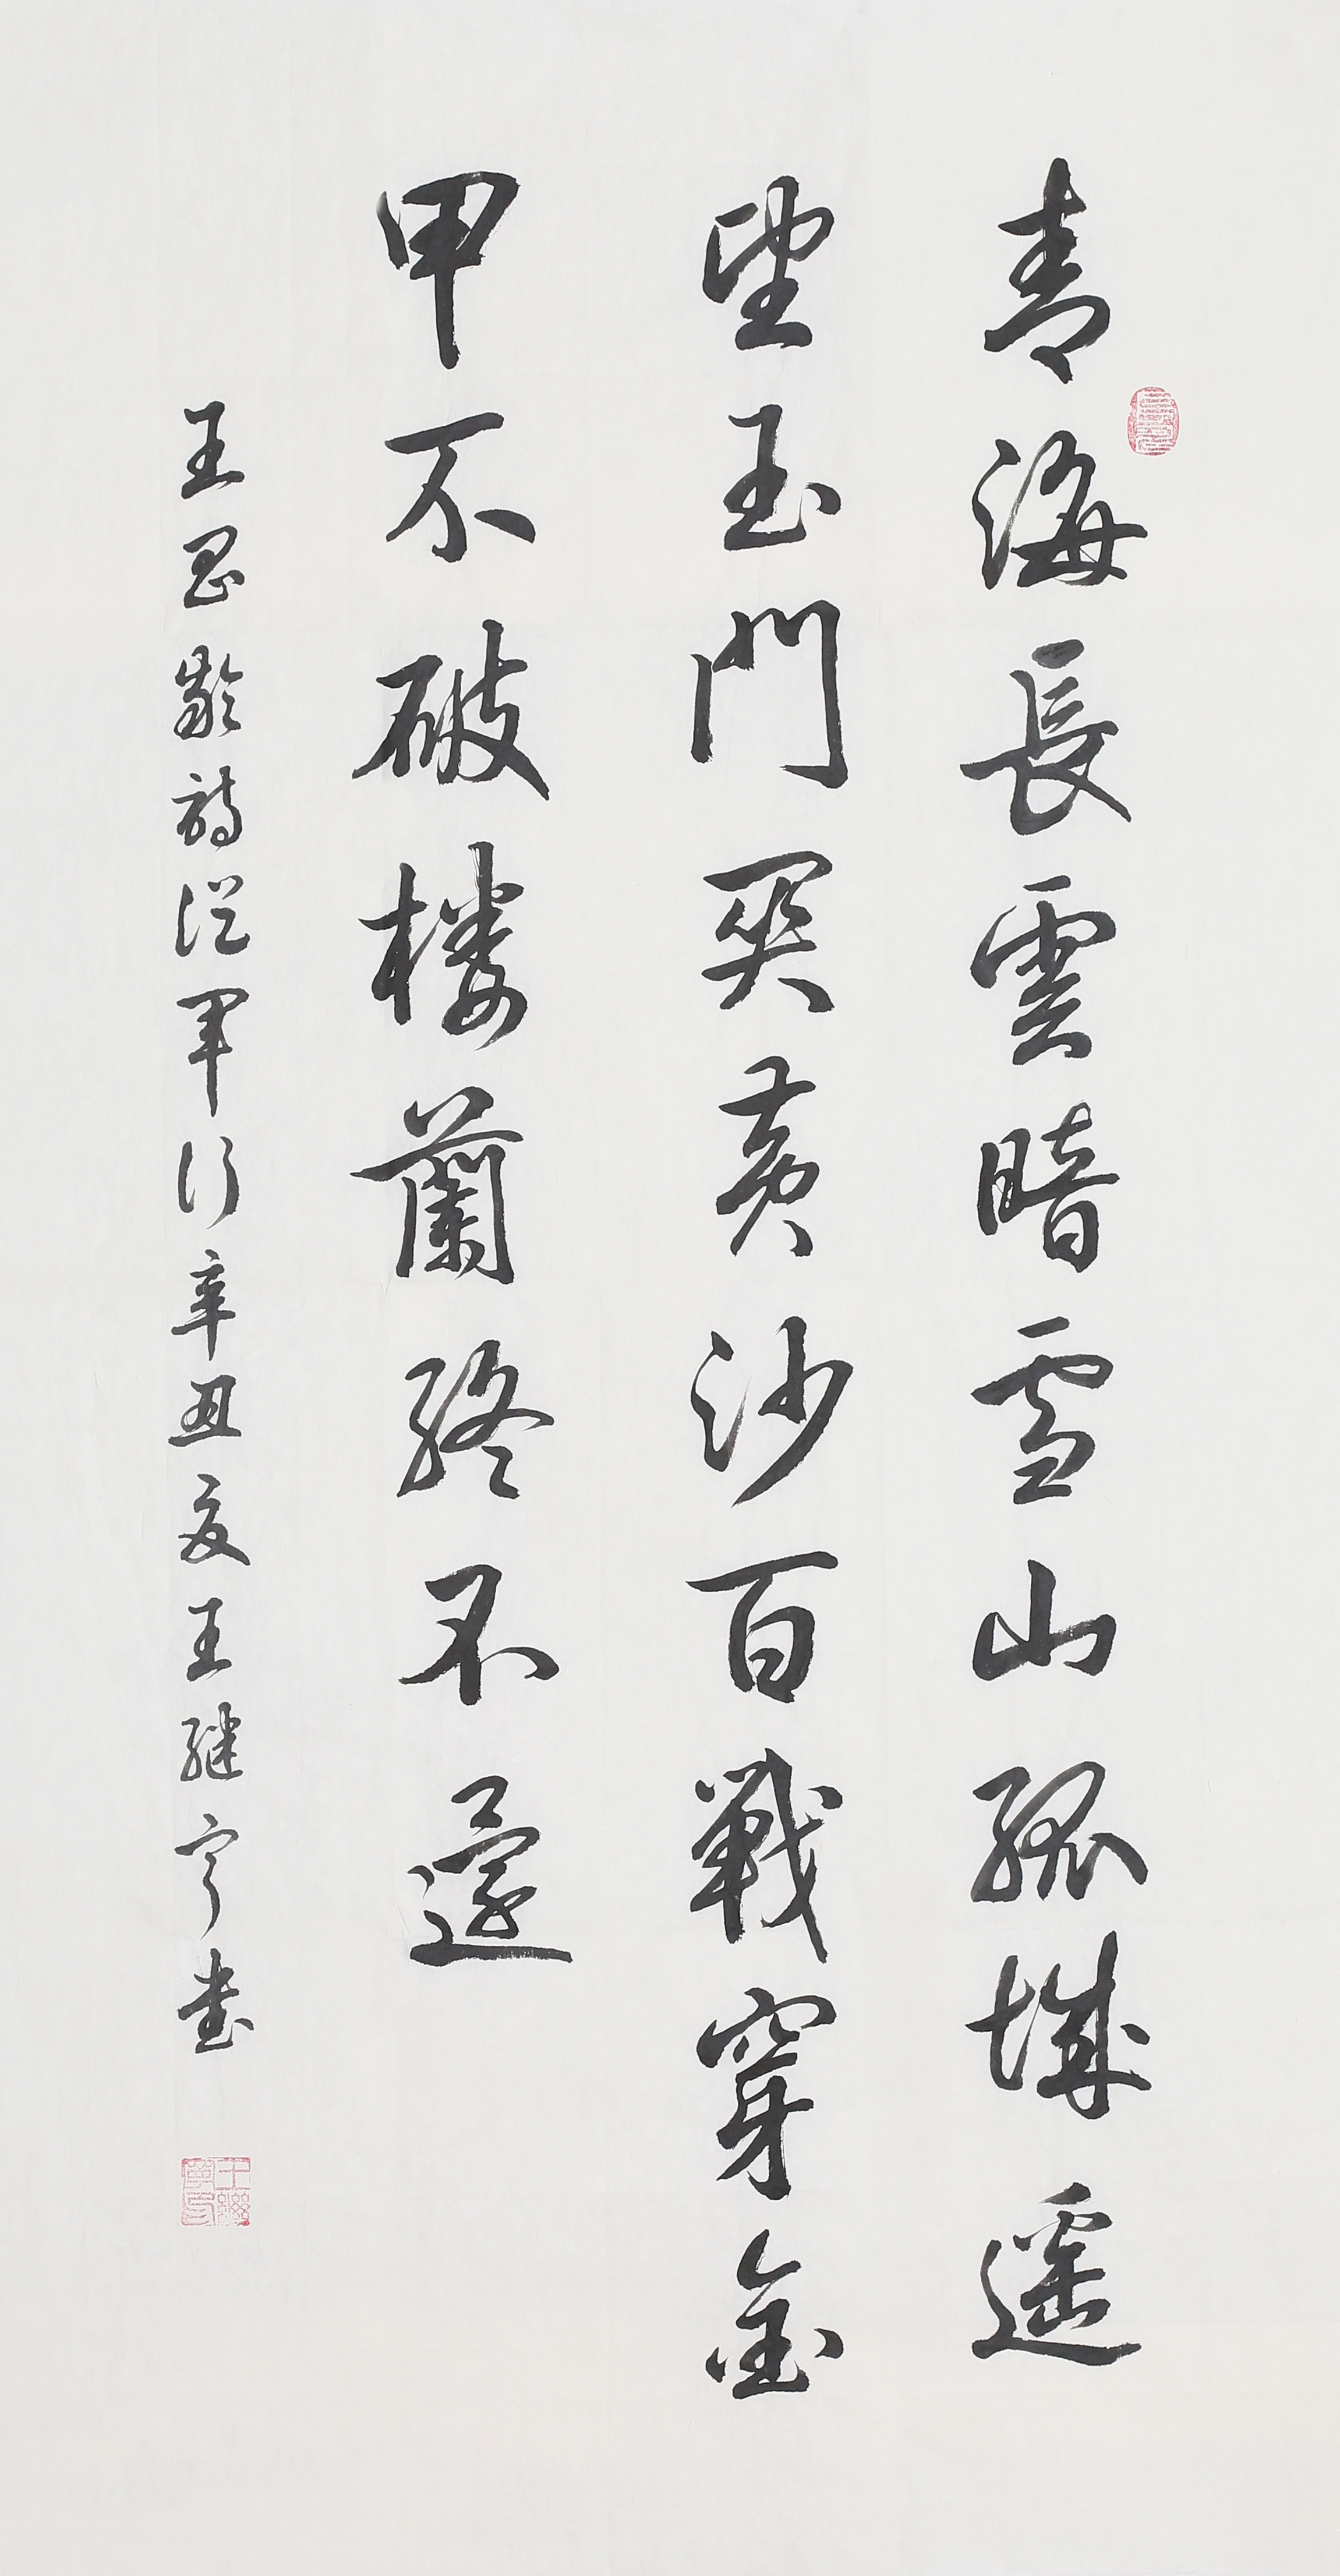 青海長雲暗雪山孤城遥
望玉門關黄沙百戰穿金
甲不破楼蘭終不還
王昌齡詩從軍行辛丑夏王継宁書